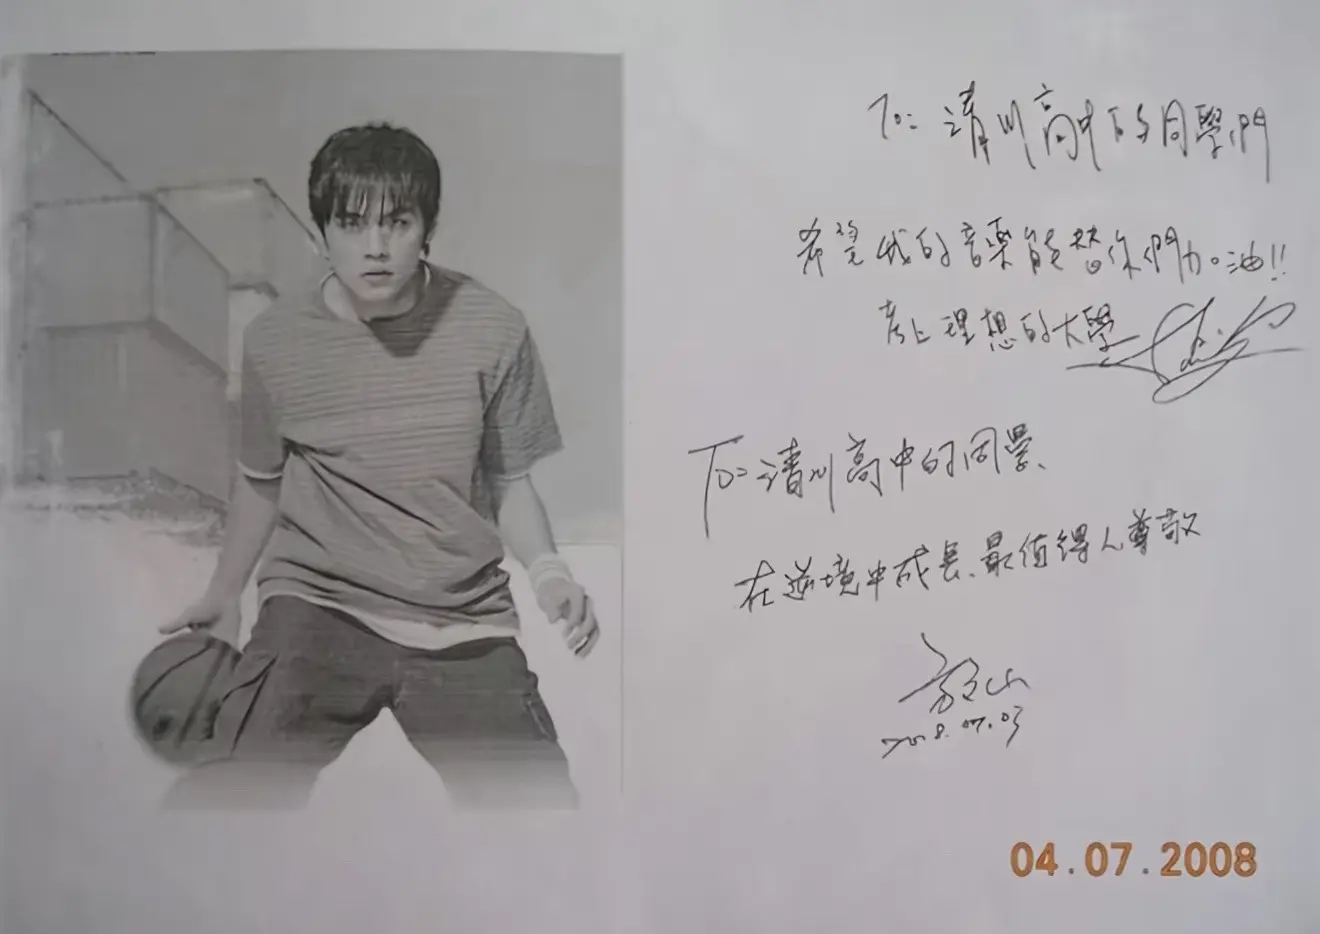 To: 清川高中的同學們
希望我的音樂能替你們加油!!
考上理想的大學
To: 清川高中的同學、
在逆境中成長、最值得人尊敬
2008.07.03
04.07.2008